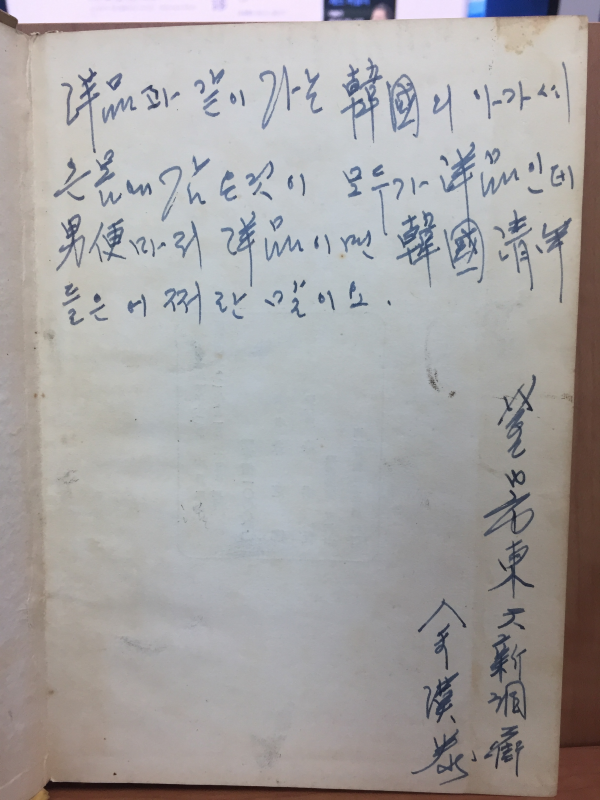 洋品과 같이 가는 韓國의 아가씨
은 몸에 감은것이 모두가 洋品인데
男便마저 洋品이면 韓國 清年
들은 어쩌란 말이오.
釜山市東大新洞
金漢泰